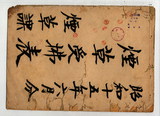 昭和十五年六月分
煙草受拂表
煙草課